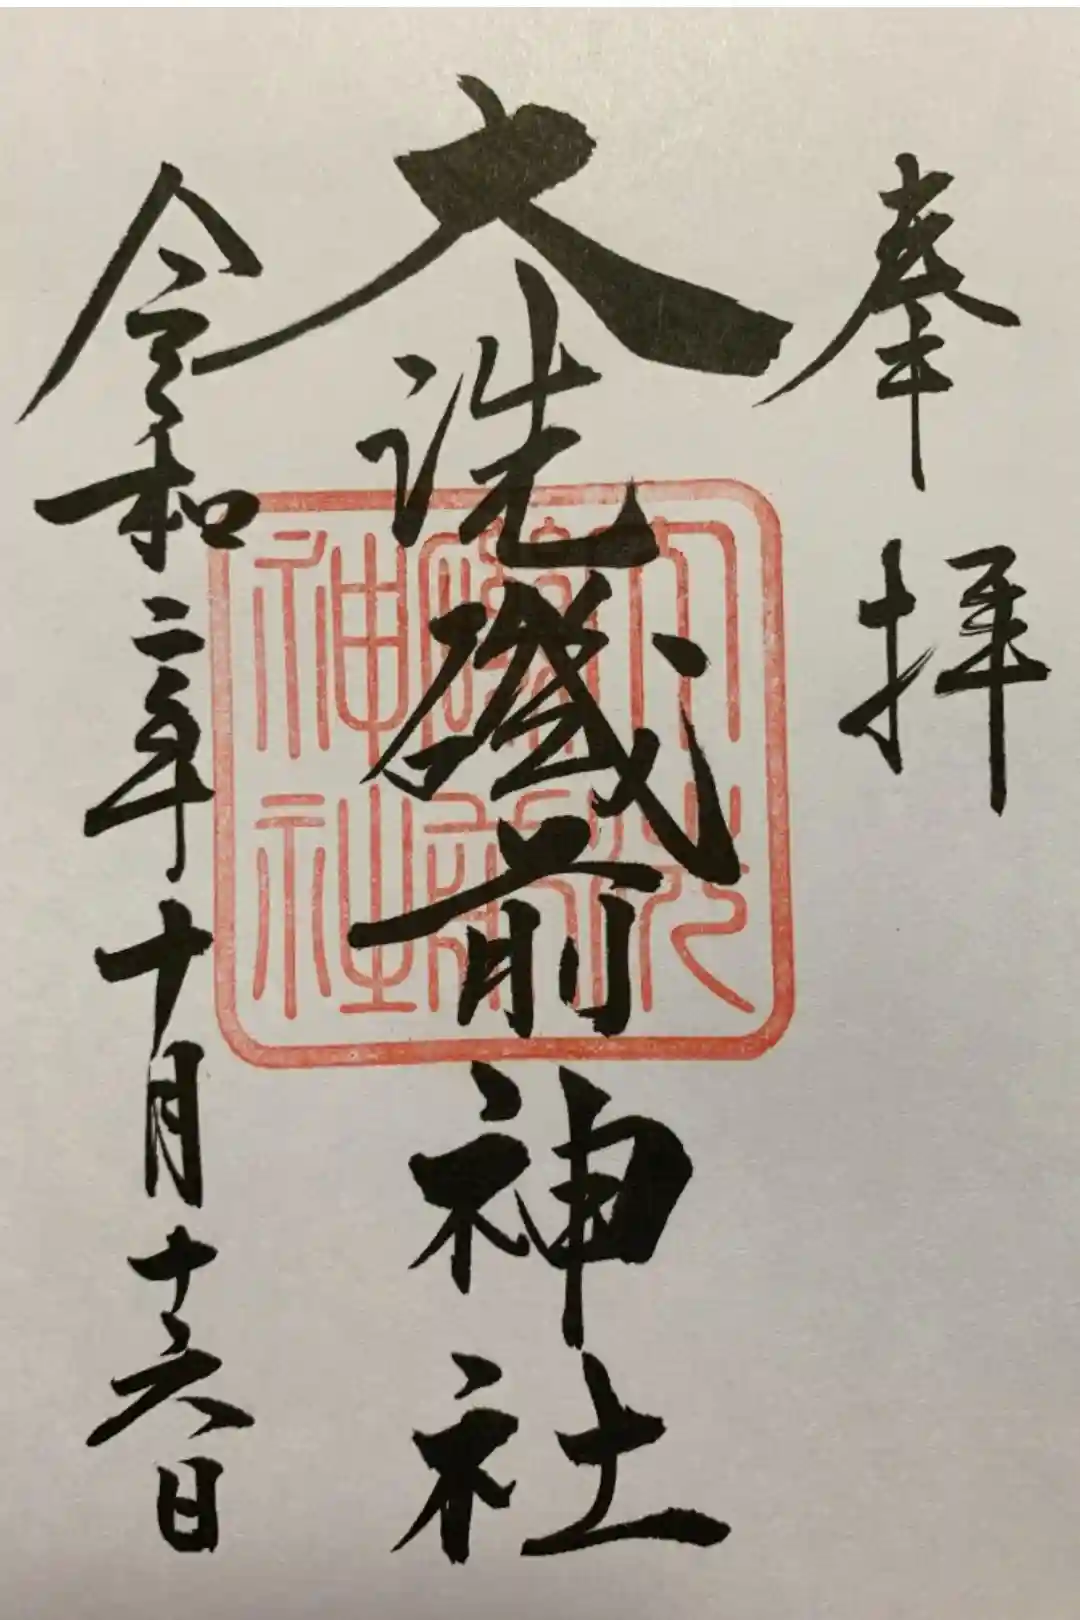 奉拝
大洗磯前神社
令和二年十月十六日
大洗
磯前
神社